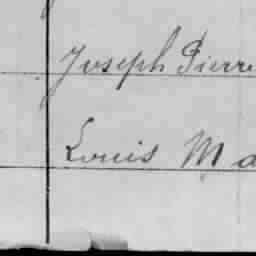 Joseph Pierre
Louis Ma